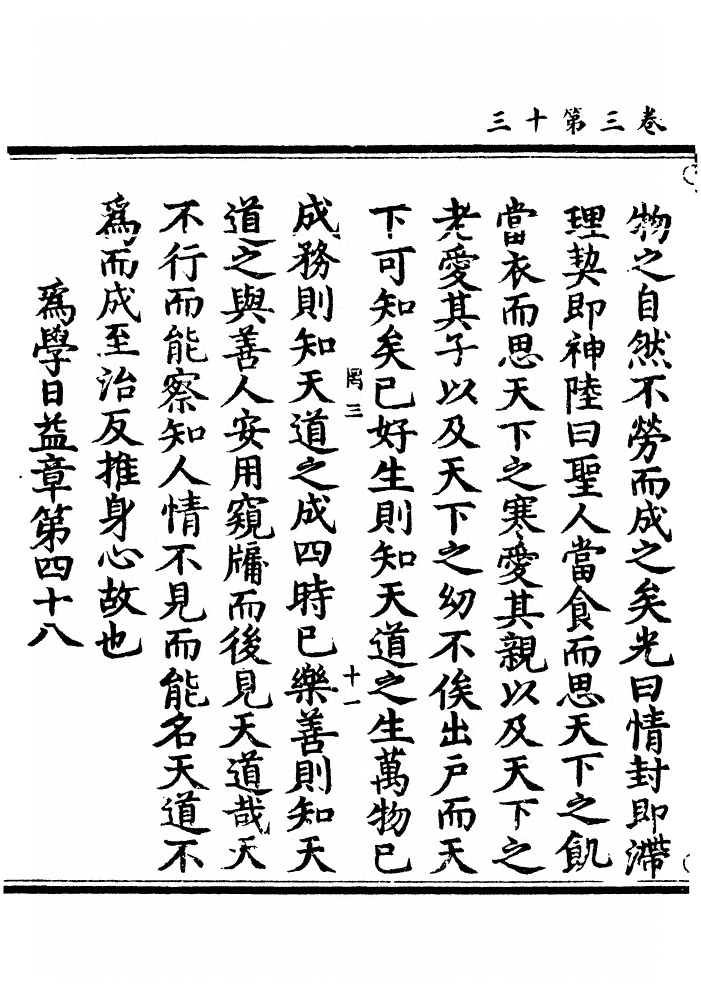 卷三第十三
物之自然不勞而成之矣光曰情封即滯
理契即神陸曰聖人當食而思天下之飢
當衣而思天下之寒愛其親以及天下之
老愛其子以及天下之幼不俟出户而天
下可知矣已好生則知天道之生萬物已
罔三
十一
成務則知天道之成四時已樂善則知天
道之與善人安用窺牖而後見天道哉天
不行而能察知人情不見而能名天道不
爲而成至治反推身心故也
爲學日益章第四十八